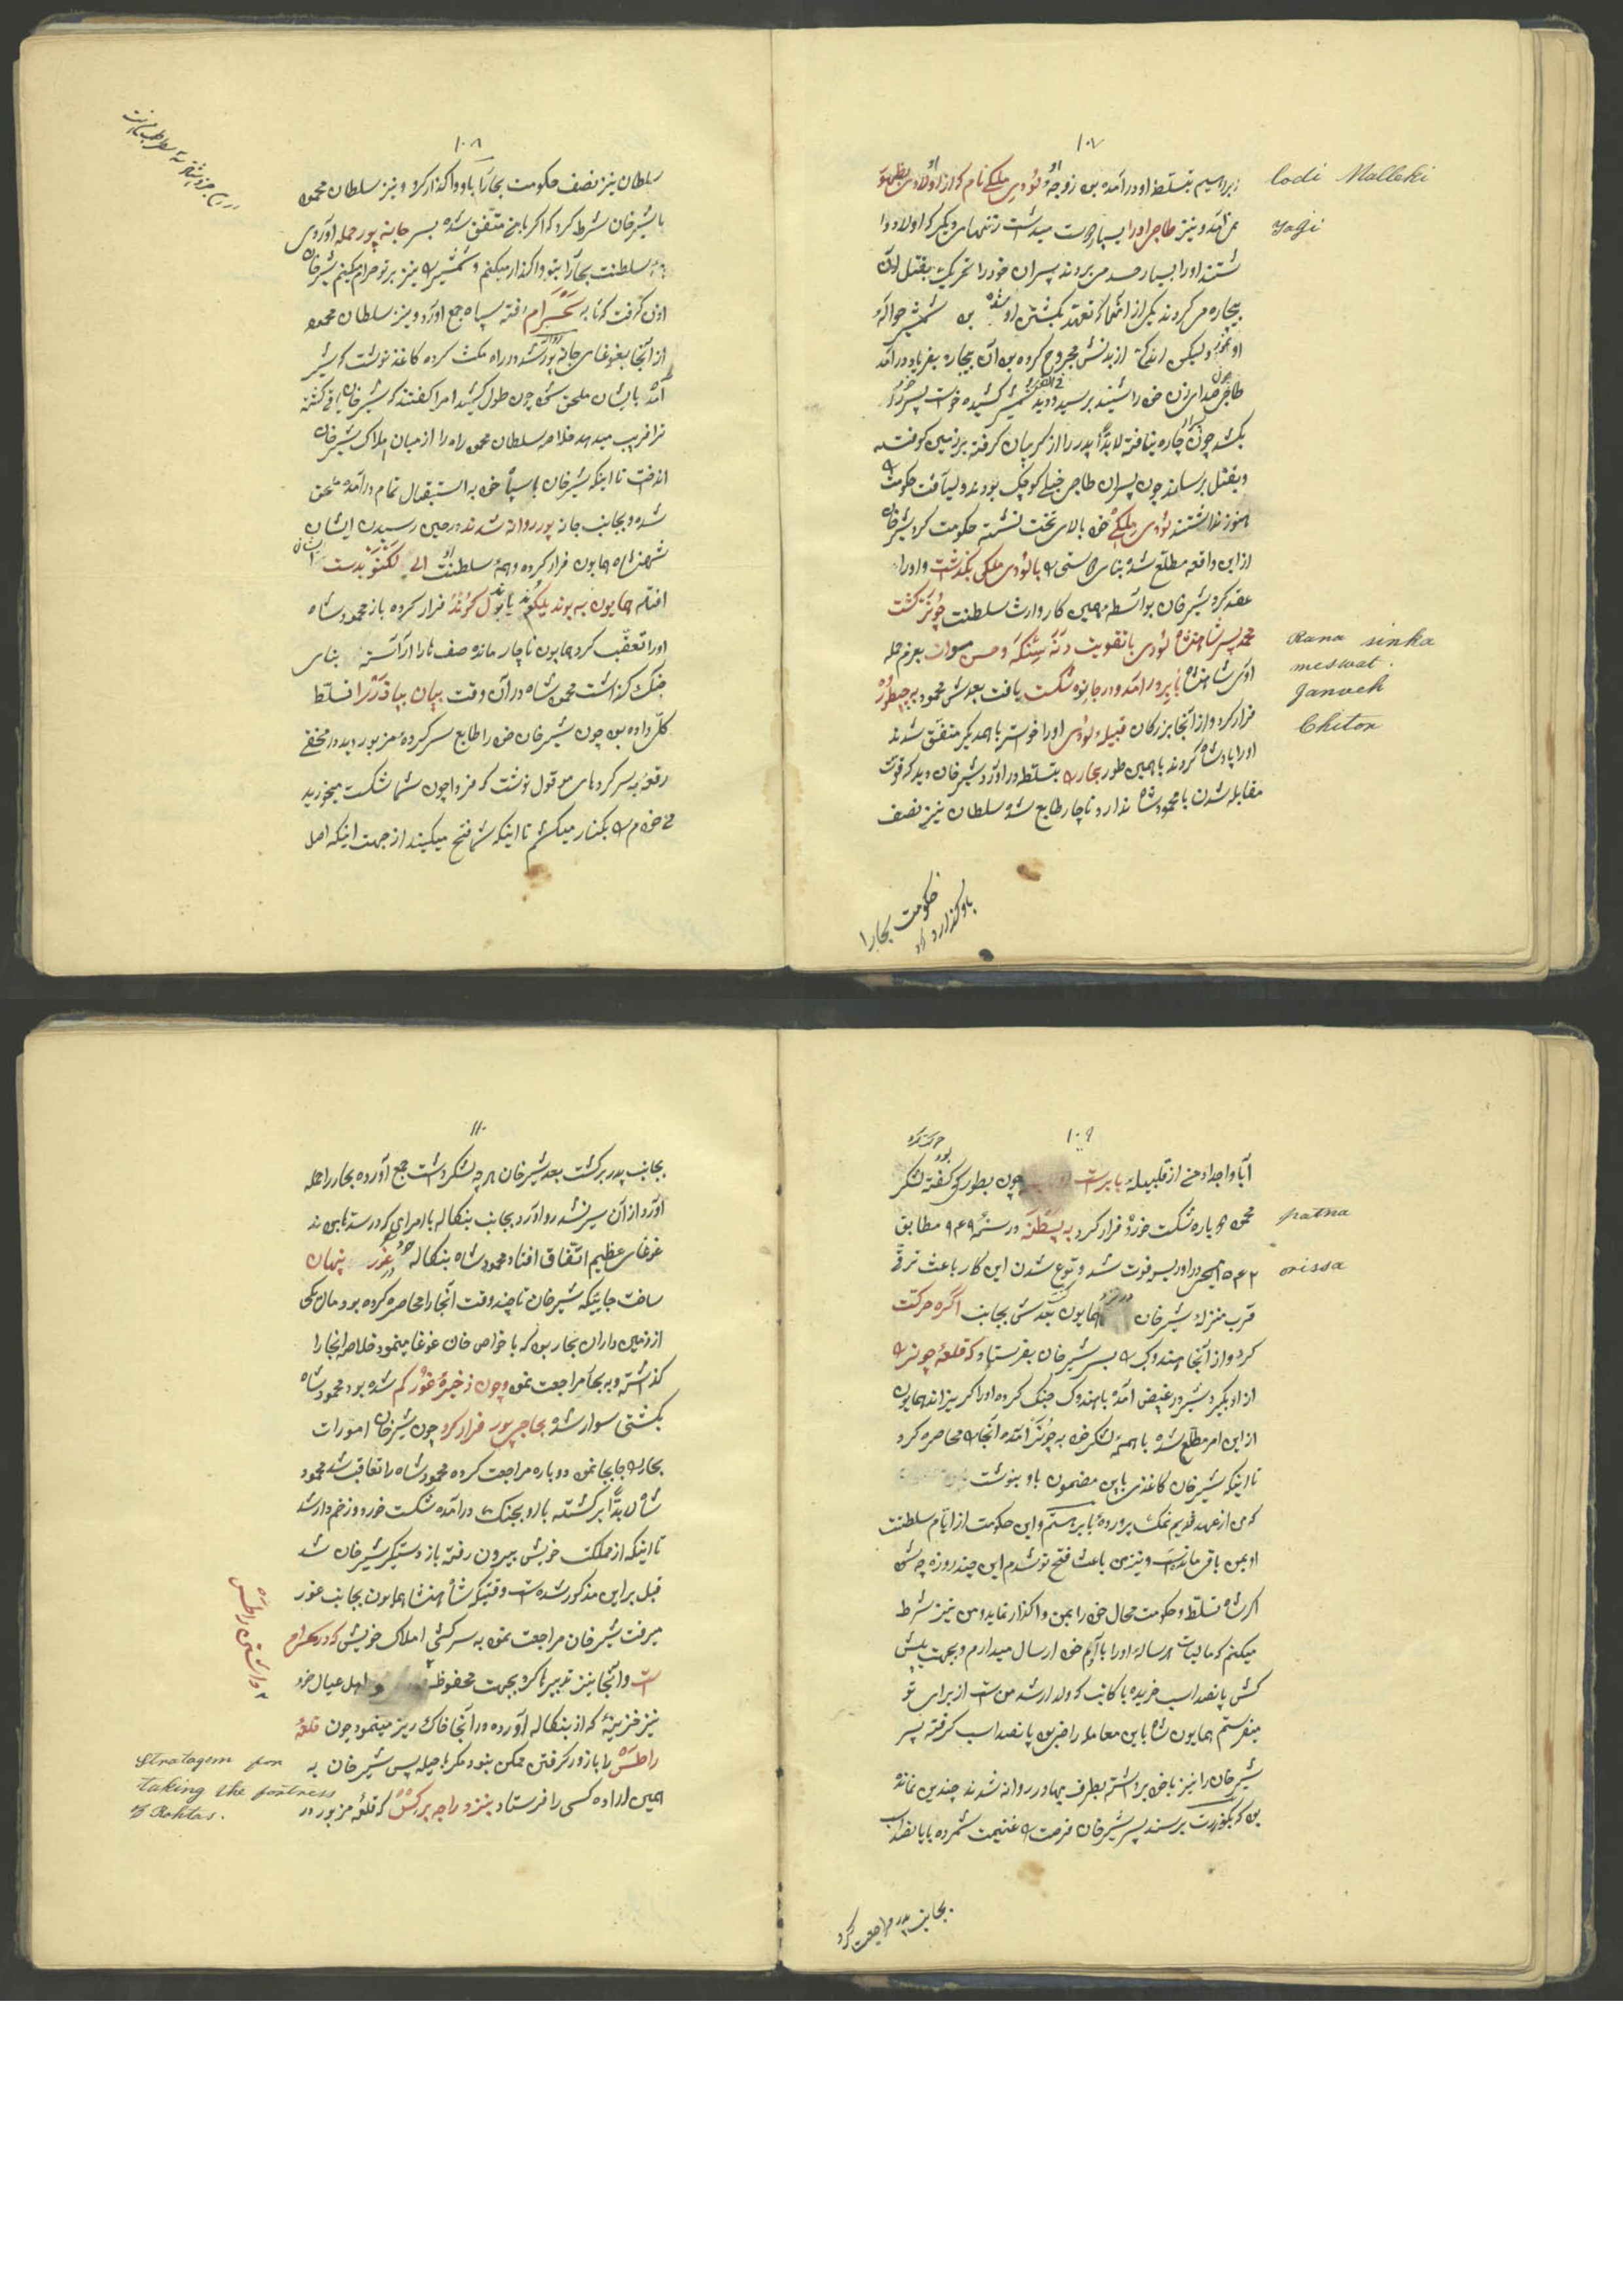 ۱۰۷
ابراهیم بتسلط او درآمده بود زوجهٔ لودی ملکی نام که از او اولادی بظهور
Lodi Malleki
نمی‌آمد و نیز طاجی او را بسیار دوست میداشت زنهای دیگر که اولاد دا
Tagi
شتند او را بسیار حسد می‌بردند پسران خود را تحریک بقتل آن
بیچاره می‌کردند یکی از آنها که تعهد بکشتن او شده بود شمشیر حواله
او نمود ولیکن اندکی از بدنش مجروح کرده بود آن بیچاره بفریاد درآمد
طاجی صدای زن خود را شنید برسید و دید شمشیر کشیده خواست پسر خود را
بکشد چون پسر چاره نیافته لابداً پدر را از گریبان گرفته بر زمین کوفته
و بقتل برسانید چون پسران طاجی خیلی کوچک بودند و لیاقت حکومت
هنوز نداشتند لودی ملکی خود بالای تخت نشسته حکومت کرد شیرخان
از این واقعه مطلع شده بنای دوستی را با لودی ملکی بگذاشت و او را
عقد کرد شیرخان بواسطهٔ همین کار وارث سلطنت چونر گشت
محمد پسر شاهنشاه لودی با تقویت رنه سنکه و حسن سوات بعزم حمله
Rana sinka
meswat.
اوی شاهنشاه بابر درآمد و در جانوه شکست یافت بعدش محمود به چطور
Janveh
فرار کرد و از آنجا بزرگان قبیلهٔ لودی او را خواسته با همدیگر متفق شدند
Chitor
او را پادشاه کردند با همین طور بهار را بتسلط درآورد شیرخان دید که قوت
مقابله شدن با محمود شاه ندارد ناچار طابع شد سلطان نیز نصف
حکومت بحار را
باو گذارد
۱۰۸
سلطان نیز نصف حکومت بحار را باو واگذار کرد و نیز سلطان محمود
با شیرخان شرط کرد که اگر با من متفق شده بسر جانه پور حمله آوردی
همهٔ سلطنت بحار را بتو واگذار میکنم و شمشیر را نیز بر تو حرام میکنم شیرخان
اذن گرفت که تا به سحسرام رفته سپاه جمع آورد و نیز سلطان محمود
از آنجا بغوغای جانه پور روانه شد در راه مکث کرده کاغذ نوشت که شیر
آمده بایشان ملحق شود چون طول کشید امرا گفتند که شیرخان
ترا فریب میدهد خلاصه سلطان محمود راه را از میان املاک شیرخان
انداخت تا اینکه شیرخان با سپاه خود به استقبال تمام درآمده ملحق
شده و بجانب جانه پور روانه شدند در حین رسیدن ایشان
شهنشاه همایون فرار کرده و همهٔ سلطنت او الی لکنو بدست ایشان
افتاد همایون به بوندیلکوند یا بوندلکوند فرار کرده باز محمود شاه
او را تعقب کرد همایون ناچار مانده صف‌ها را آراسته بنای
جنگ گذاشت محمود شاه در آن وقت ببان بیازر را تسلط
کلی داده بود چون شیرخان خود را طابع سرکردهٔ مزبور دید در مخفی
رقعه به سرکرده‌های موقول نوشت که فردا چون شما شکست میخورید
من خودم را بکنار میکشم تا اینکه شما فتح میکنید از جهت اینکه اصل
۱۰۹
آبا و اجداد من از قبیلهٔ بابر است چون بطوری که گفته لشکر
حرکت کرد
محمود دوباره شکست خورد و فرار کرد به پطنه در سنهٔ ۹۴۹ مطابق
patna
۱۵۴۲ مسیحی در اوریسو فوت شد وقوع شدن این کار باعث ترقی
orissa
قرب منزلهٔ شیرخان در نزد همایون بعدش بجانب آگره حرکت
کرد و از آنجا هندوبک را بسر شیرخان بفرستاد که قلعهٔ چونر را
از او بگیرد شیر در غیض آمده با هندوبک جنگ کرده او را گریزاند همایون
از این امر مطلع شده با همهٔ لشکر خود به چونر آمده آنجا را محاصره کرد
تا اینکه شیرخان کاغذی باین مضمون باو بنوشت
که من از عهد قدیم نمک پروردهٔ بابر هستم و این حکومت از ایام سلطنت
او بمن باقی مانده است و نیز من باعث فتح تو شدم این چند روزه چه شد
اگر شاه تسلط و حکومت محال خود را بمن واگذار نماید و من نیز شرط
میکنم که مالیات هر ساله او را با آدم خود ارسال میدارم و بجهت پیش
کش پانصد اسب خریده با کاتب که ولد ارشد من است از برای تو
میفرستم همایون شاه باین معامله راضی بود پانصد اسب گرفته پسر
شیرخان را نیز با خود برداشته بطرف بهادر روانه شدند چندین نمانده
بود که بگوزرت برسند پسر شیرخان فرصت را غنیمت شمرده با پانصد اسب
بجانب پدر مراجعت کرد
۱۱۰
بجانب پدر برگشت بعد شیرخان هر چه لشکر داشت جمع آورده بحار را حمله
آورد از آن سیر نشد رو آورد بجانب بنگاله با امرای که در سند بودند
غوغای عظیم اتفاق افتاد محمود شاه بنگاله خود در غور پنهان
ساخت جاییکه شیرخان تا چند وقت آنجا را محاصره کرده بود مال یکی
از زمین داران بحار بود که با خواص خان غوغا مینمود خلاصه آنجا را
گذاشته و به بحار مراجعت نمود و چون ذخیرهٔ غور کم شده بود محمود شاه
بکشتی سوار شده بحاجی پور فرار کرد چون شیرخان امورات
بحار را جابجا نمود دوباره مراجعت کرده محمود شاه را تعاقب شد محمود
شاه لابداً برگشته با او بجنگ درآمده شکست خورد و زخم‌دار شد
تا اینکه از مملکت خویش بیرون رفته باز دستگیر شیرخان شد
قبل بر این مذکور شده است وقتیکه شاهنشاه همایون بجانب غور
میرفت شیرخان مراجعت نمود به سرکشی املاک خویش که در سحسرام
است و آنجا نیز تدبیرها کرد بجهت محفوظ اهل عیال خود
نیز خزینهٔ که از بنگاله آورده در آنجا خاک ریز مینمود چون قلعهٔ
راطس را با زور گرفتن ممکن نبود مگر با حیله پس شیرخان به
همین اراده کسی را فرستاد بنزد راجه برکس که قلعهٔ مزبور در
Stratagem for
taking the fortress
of Rohtas.